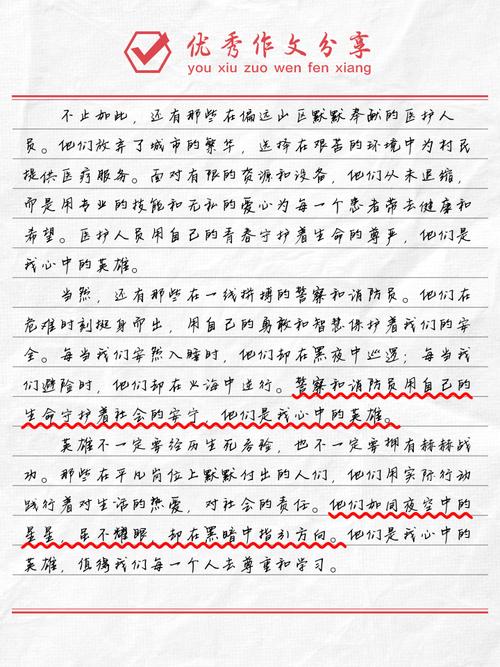 优秀作文分享
you xiu zuo wen fen xiang
不止如此，还有那些在偏远山区默默奉献的医护人
员。他们放弃了城市的繁华，选择在艰苦的环境中为村民
提供医疗服务。面对有限的资源和设备，他们从未退缩，
而是用专业的技能和无私的爱心为每一个患者带去健康和
希望。医护人员用自己的青春守护着生命的尊严，他们是
我心中的英雄。
当然，还有那些在一线拼搏的警察和消防员。他们在
危难时刻挺身而出，用自己的勇敢和智慧保护着我们的安
全。每当我们安然入睡时，他们却在黑夜中巡逻；每当我
们避险时，他们却在火海中逆行。警察和消防员用自己的
生命守护着社会的安宁，他们是我心中的英雄。
英雄不一定要经历生死考验，也不一定要拥有赫赫战
功。那些在平凡岗位上默默付出的人们，他们用实际行动
践行着对生活的热爱，对社会的责任。他们如同夜空中的
星星，虽不耀眼，却在黑暗中指引方向。他们是我心中的
英雄，值得我们每一个人去尊重和学习。